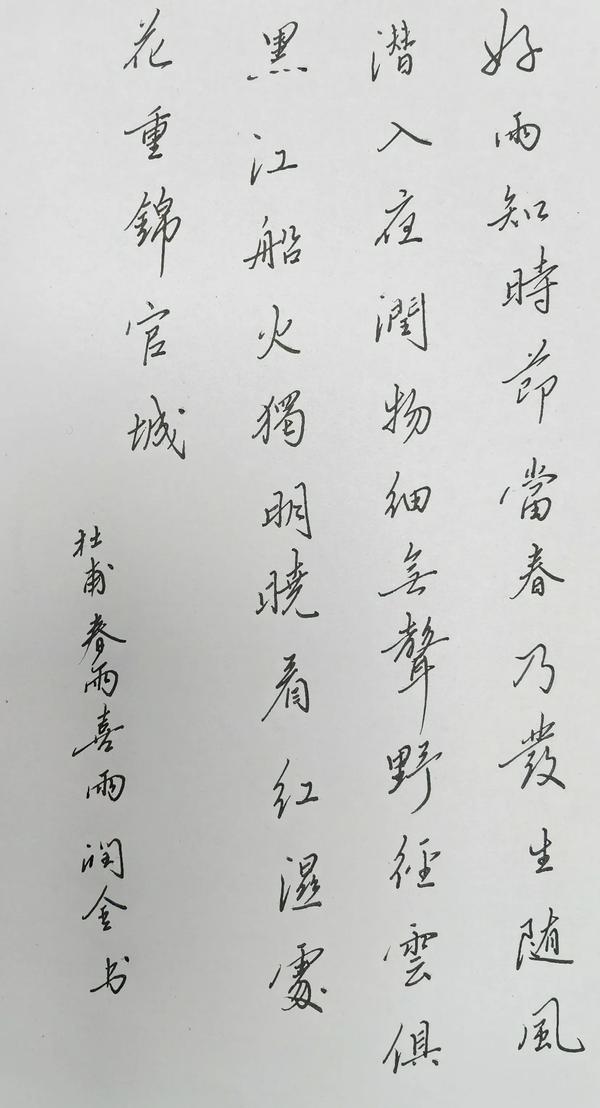 好雨知時節當春乃發生随風
潜入夜潤物细無聲野徑雲俱
黑江船火獨明曉看红濕處
花重錦官城
杜甫春雨喜雨 润金书